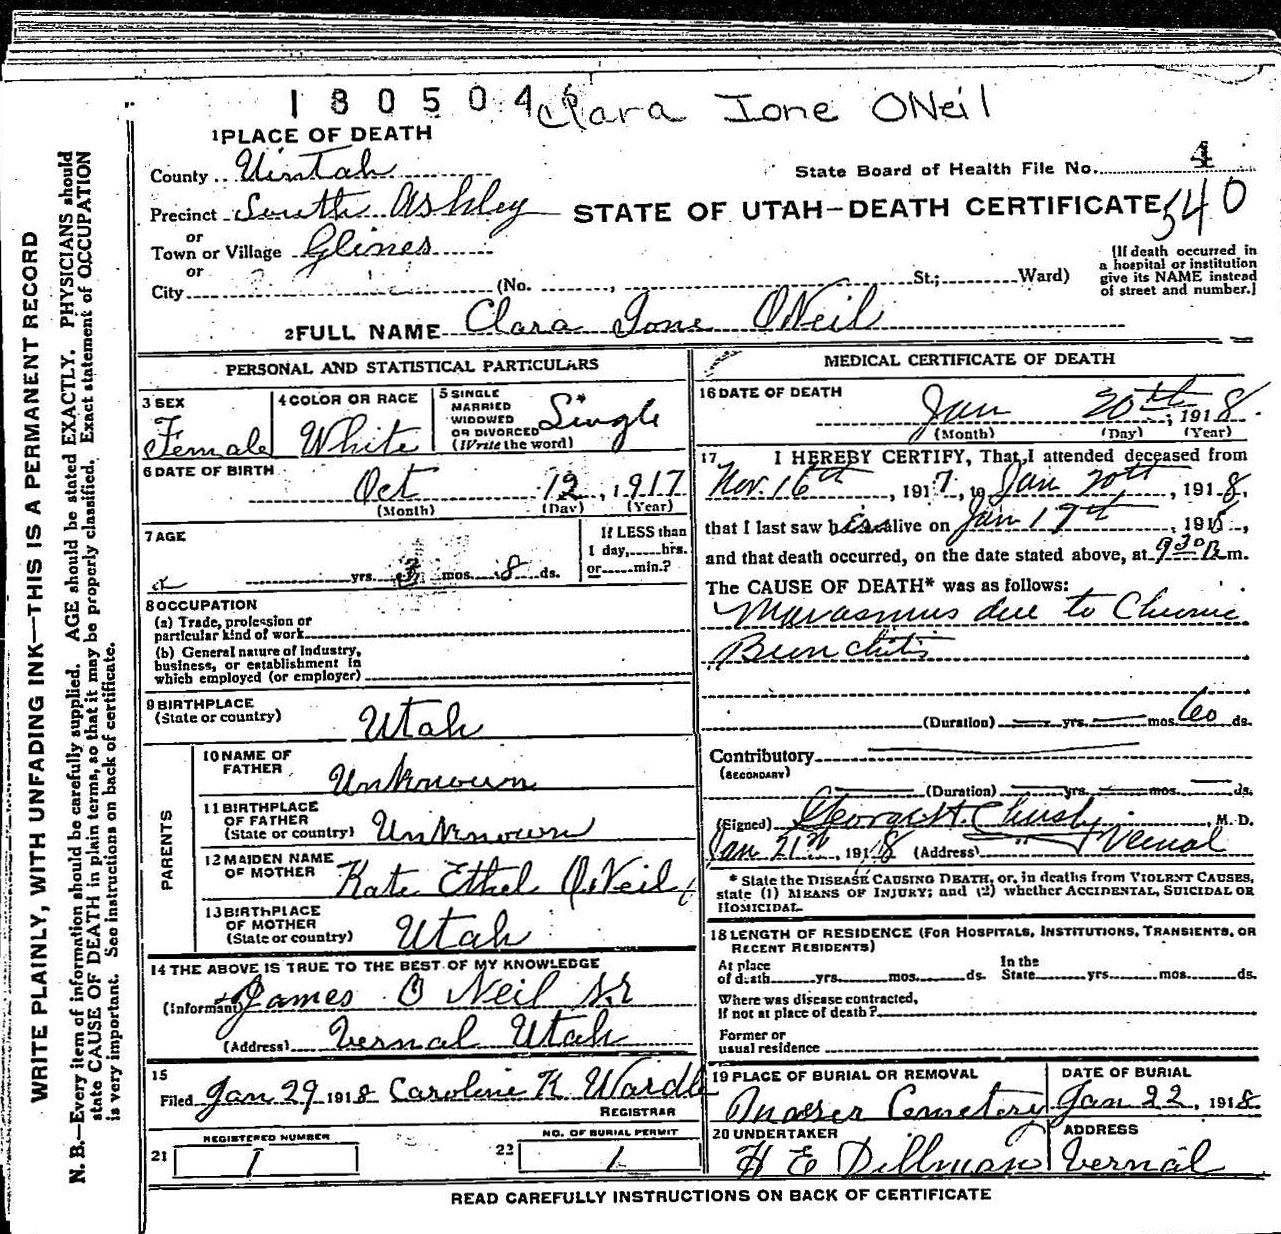 180504 Clara Ione ONeil
1 PLACE OF DEATH
County Uintah
State Board of Health File No. 4
Precinct South Ashley
STATE OF UTAH—DEATH CERTIFICATE 540
or
Town or Village Glines
or
City (No. , St.; Ward)
[If death occurred in
a hospital or institution
give its NAME instead
of street and number.]
2 FULL NAME Clara Ione ONeil
PERSONAL AND STATISTICAL PARTICULARS
3 SEX
Female
4 COLOR OR RACE
White
5 SINGLE
MARRIED
WIDOWED
OR DIVORCED
(Write the word)
Single
6 DATE OF BIRTH
Oct 12, 1917
(Month) (Day) (Year)
7 AGE
yrs. 3 mos. 8 ds.
If LESS than
1 day, hrs.
or min.?
8 OCCUPATION
(a) Trade, profession or
particular kind of work
(b) General nature of industry,
business, or establishment in
which employed (or employer)
9 BIRTHPLACE
(State or country)
Utah
PARENTS
10 NAME OF
FATHER
Unknown
11 BIRTHPLACE
OF FATHER
(State or country)
Unknown
12 MAIDEN NAME
OF MOTHER
Kate Ethel O'Neil
13 BIRTHPLACE
OF MOTHER
(State or country)
Utah
14 THE ABOVE IS TRUE TO THE BEST OF MY KNOWLEDGE
(Informant) James O Neil Sr
(Address) Vernal Utah
15
Filed Jan 29 1918 Caroline K Wardle
REGISTRAR
REGISTERED NUMBER
21 1
NO. OF BURIAL PERMIT
22 1
MEDICAL CERTIFICATE OF DEATH
16 DATE OF DEATH
Jan 20th, 1918
(Month) (Day) (Year)
17 I HEREBY CERTIFY, That I attended deceased from
Nov. 16th, 1917, to Jan 20th, 1918,
that I last saw her alive on Jan 19th, 1918,
and that death occurred, on the date stated above, at 9 30 m.
The CAUSE OF DEATH* was as follows:
Marasmus due to Chronic
Bronchitis
(Duration) yrs. mos. 60 ds.
Contributory
(SECONDARY)
(Duration) yrs. mos. ds.
(Signed) George H. Christy, M. D.
Jan 21st, 1918 (Address) Vernal
* State the DISEASE CAUSING DEATH, or, in deaths from VIOLENT CAUSES,
state (1) MEANS OF INJURY; and (2) whether ACCIDENTAL, SUICIDAL OR
HOMICIDAL.
18 LENGTH OF RESIDENCE (FOR HOSPITALS, INSTITUTIONS, TRANSIENTS, OR
RECENT RESIDENTS)
At place
of death yrs. mos. ds.
In the
State yrs. mos. ds.
Where was disease contracted,
If not at place of death?
Former or
usual residence
19 PLACE OF BURIAL OR REMOVAL
Cemetery
DATE OF BURIAL
Jan 22, 1918
20 UNDERTAKER
H E Dillman
ADDRESS
Vernal
READ CAREFULLY INSTRUCTIONS ON BACK OF CERTIFICATE
WRITE PLAINLY, WITH UNFADING INK—THIS IS A PERMANENT RECORD
N. B.—Every item of information should be carefully supplied. AGE should be stated EXACTLY. PHYSICIANS should
state CAUSE OF DEATH in plain terms, so that it may be properly classified. Exact statement of OCCUPATION
is very important. See instructions on back of certificate.